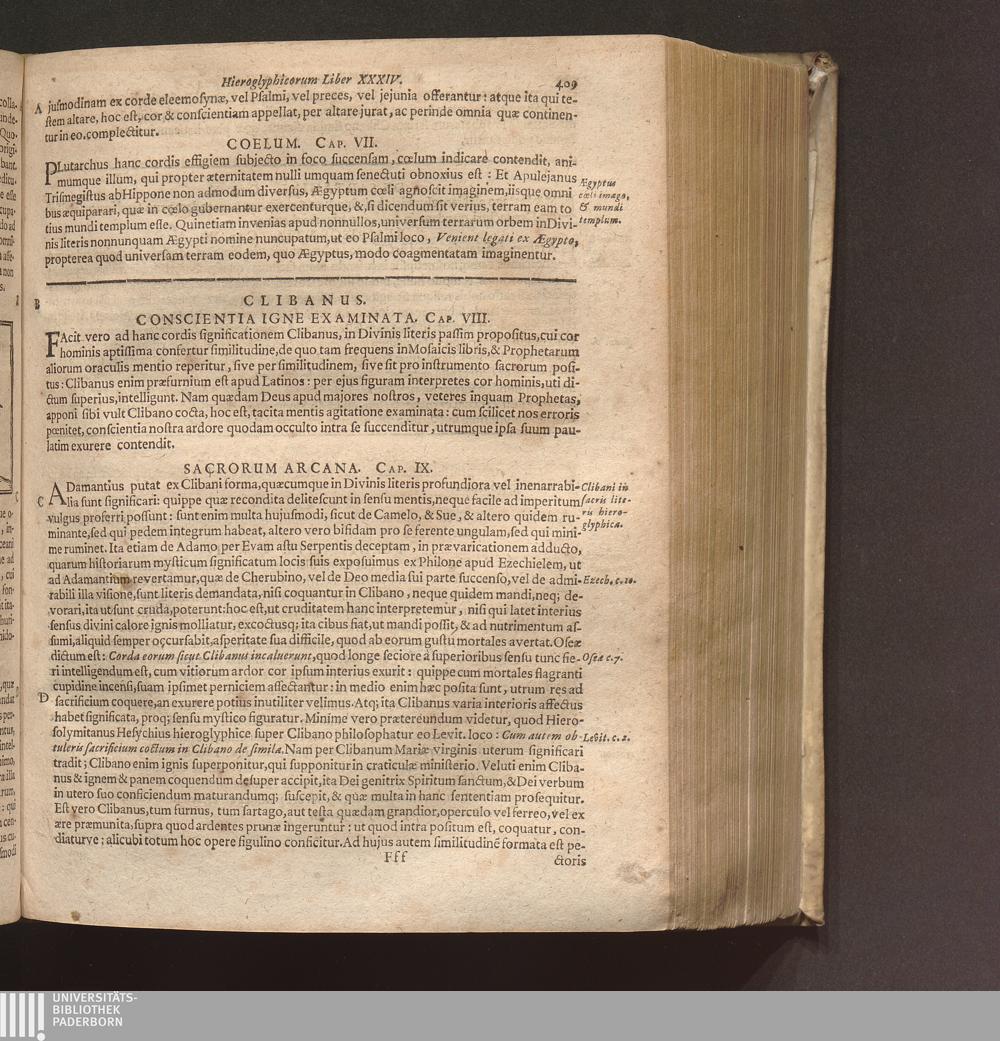 Hieroglyphicorum Liber XXXIV. 409
A jusmodinam ex corde eleemosynæ, vel Psalmi, vel preces, vel jejunia offerantur: atque ita qui te-
stem altare, hoc est, cor & conscientiam appellat, per altare jurat, ac perinde omnia quæ continen-
tur in eo. complectitur.
COELUM. CAP. VII.
PLutarchus hanc cordis effigiem subjecto in foco succensam, cœlum indicare contendit, ani-
mumque illum, qui propter æternitatem nulli umquam senectuti obnoxius est: Et Apulejanus
Trismegistus ab Hippone non admodum diversus, Ægyptum cœli agnoscit imaginem, iisque omni
bus æquiparari, quæ in cœlo gubernantur exercenturque, &, si dicendum sit verius, terram eam to
tius mundi templum esse. Quinetiam invenias apud nonnullos, universum terrarum orbem in Divi-
nis literis nonnunquam Ægypti nomine nuncupatum, ut eo Psalmi loco, Venient legati ex Ægypto,
propterea quod universam terram eodem, quo Ægyptus, modo coagmentatam imaginentur.
Ægyptus
cœli imago,
& mundi
templum.
B CLIBANUS.
CONSCIENTIA IGNE EXAMINATA. CAP. VIII.
FAcit vero ad hanc cordis significationem Clibanus, in Divinis literis passim propositus, cui cor
hominis aptissima confertur similitudine, de quo tam frequens in Mosaicis libris, & Prophetarum
aliorum oraculis mentio reperitur, sive per similitudinem, sive sit pro instrumento sacrorum posi-
tus: Clibanus enim præfurnium est apud Latinos: per ejus figuram interpretes cor hominis, uti di-
ctum superius, intelligunt. Nam quædam Deus apud majores nostros, veteres inquam Prophetas,
apponi sibi vult Clibano cocta, hoc est, tacita mentis agitatione examinata: cum scilicet nos erroris
pœnitet, conscientia nostra ardore quodam occulto intra se succenditur, utrumque ipsa suum pau-
latim exurere contendit.
SACRORUM ARCANA. CAP. IX.
ADamantius putat ex Clibani forma, quæcumque in Divinis literis profundiora vel inenarrabi-
C lia sunt significari: quippe quæ recondita delitescunt in sensu mentis, neque facile ad imperitum
vulgus proferri possunt: sunt enim multa hujusmodi, sicut de Camelo, & Sue, & altero quidem ru-
minante, sed qui pedem integrum habeat, altero vero bifidam pro se ferente ungulam, sed qui mini-
me ruminet. Ita etiam de Adamo per Evam astu Serpentis deceptam, in prævaricationem adducto,
quarum historiarum mysticum significatum locis suis exposuimus ex Philone apud Ezechielem, ut
ad Adamantium revertamur, quæ de Cherubino, vel de Deo media sui parte succenso, vel de admi-
rabili illa visione, sunt literis demandata, nisi coquantur in Clibano, neque quidem mandi, neq; de-
vorari, ita ut sunt cruda, poterunt: hoc est, ut cruditatem hanc interpretemur, nisi qui latet interius
sensus divini calore ignis molliatur, excoctusq; ita cibus fiat, ut mandi possit, & ad nutrimentum as-
sumi, aliquid semper occursabit, asperitate sua difficile, quod ab eorum gustu mortales avertat. Oseæ
dictum est: Corda eorum sicut Clibanus incaluerunt, quod longe seciore à superioribus sensu tunc fie-
ri intelligendum est, cum vitiorum ardor cor ipsum interius exurit: quippe cum mortales flagranti
cupidine incensi, suam ipsimet perniciem affectantur: in medio enim hæc posita sunt, utrum res ad
D sacrificium coquere, an exurere potius inutiliter velimus. Atq; ita Clibanus varia interioris affectus
habet significata, proq; sensu mystico figuratur. Minime vero prætereundum videtur, quod Hiero-
solymitanus Hesychius hieroglyphice super Clibano philosophatur eo Levit. loco: Cum autem ob-
tuleris sacrificium coctum in Clibano de simila. Nam per Clibanum Mariæ virginis uterum significari
tradit; Clibano enim ignis superponitur, qui supponitur in craticulæ ministerio. Veluti enim Cliba-
nus & ignem & panem coquendum desuper accipit, ita Dei genitrix Spiritum sanctum, & Dei verbum
in utero suo conficiendum maturandumq; suscepit, & quæ multa in hanc sententiam prosequitur.
Est vero Clibanus, tum furnus, tum sartago, aut testa quædam grandior, operculo vel ferreo, vel ex
ære præmunita, supra quod ardentes prunæ ingeruntur: ut quod intra positum est, coquatur, con-
diaturve: alicubi totum hoc opere figulino conficitur. Ad hujus autem similitudinẽ formata est pe-
Clibani in
sacris lite-
ris hiero-
glyphica.
Ezech. c. 10.
Oseæ c. 7.
Levit. c. 2.
Fff ctoris
UNIVERSITÄTS-
BIBLIOTHEK
PADERBORN